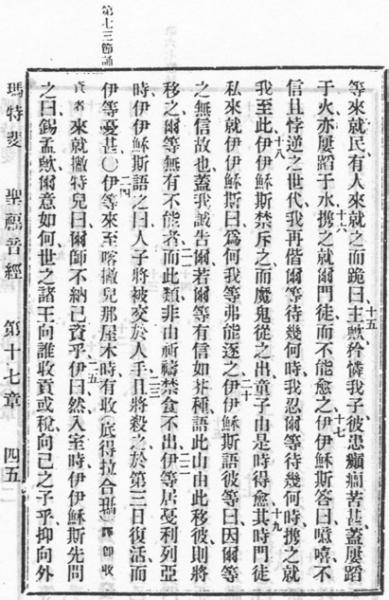 第七三節誦
等來就民有人來就之而跪曰主歟矜憐我子彼患癲癇苦甚蓋屢蹈
十五
于火亦屢蹈于水携之就爾門徒而不能愈之伊伊穌斯答曰噫嘻不
十六 十七
信且悖逆之世代我再偕爾等待幾何時我忍爾等待幾何時携之就
我至此伊伊穌斯禁斥之而魔鬼從之出童子由是時得愈其時門徒
十八 十九
私來就伊伊穌斯曰爲何我等弗能逐之伊伊穌斯語彼等曰因爾等
二十
之無信故也蓋我誠告爾若爾等有信如芥種語此山由此移彼則將
移之爾等無有不能者而此類非由祈禱禁食不出伊等居戞利列亞
二一 二二
時伊伊穌斯語之曰人子將被交於人手且將殺之於第三日復活而
二三
伊等憂甚〇伊等來至喀撇兒那屋木時有收(底得拉合瑪)譯卽收
二四
資者來就撇特兒曰爾師不納已資乎伊曰然入室時伊伊穌斯先問
二五
之曰錫孟歟爾意如何世之諸王向誰收貢或稅向己之子乎抑向外
瑪特斐 聖福音經 第十七章 四五